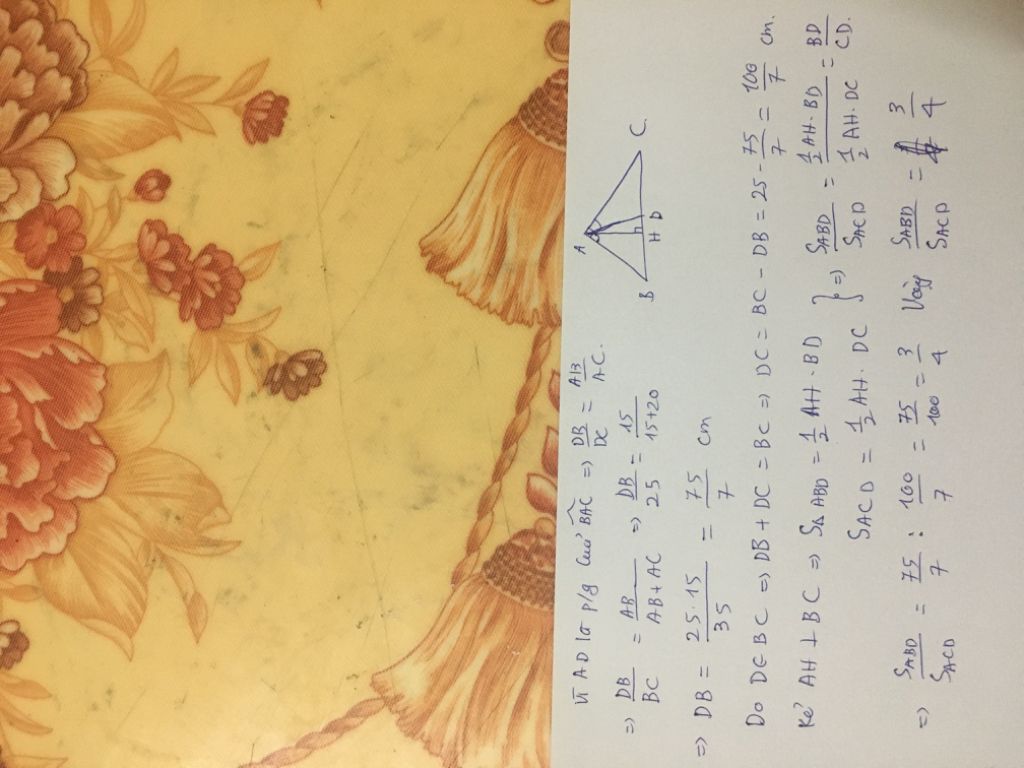 Vì AD là p/g của BAC => DB/DC = AB/AC.
=> DB/BC = AB/AB+AC => DB/25 = 15/15+20
=> DB = 25.15/35 = 75/7 cm
A
B H D C.
Do D∈BC => DB + DC = BC => DC = BC - DB = 25 - 75/7 = 100/7 cm.
Kẻ AH ⊥ BC => SΔABD = 1/2 AH.BD } => SABD/SACD = 1/2 AH.BD / 1/2 AH.DC = BD/CD.
SACD = 1/2 AH.DC
=> SABD/SACD = 75/7 : 100/7 = 75/100 = 3/4 Vậy SABD/SACD = 3/4